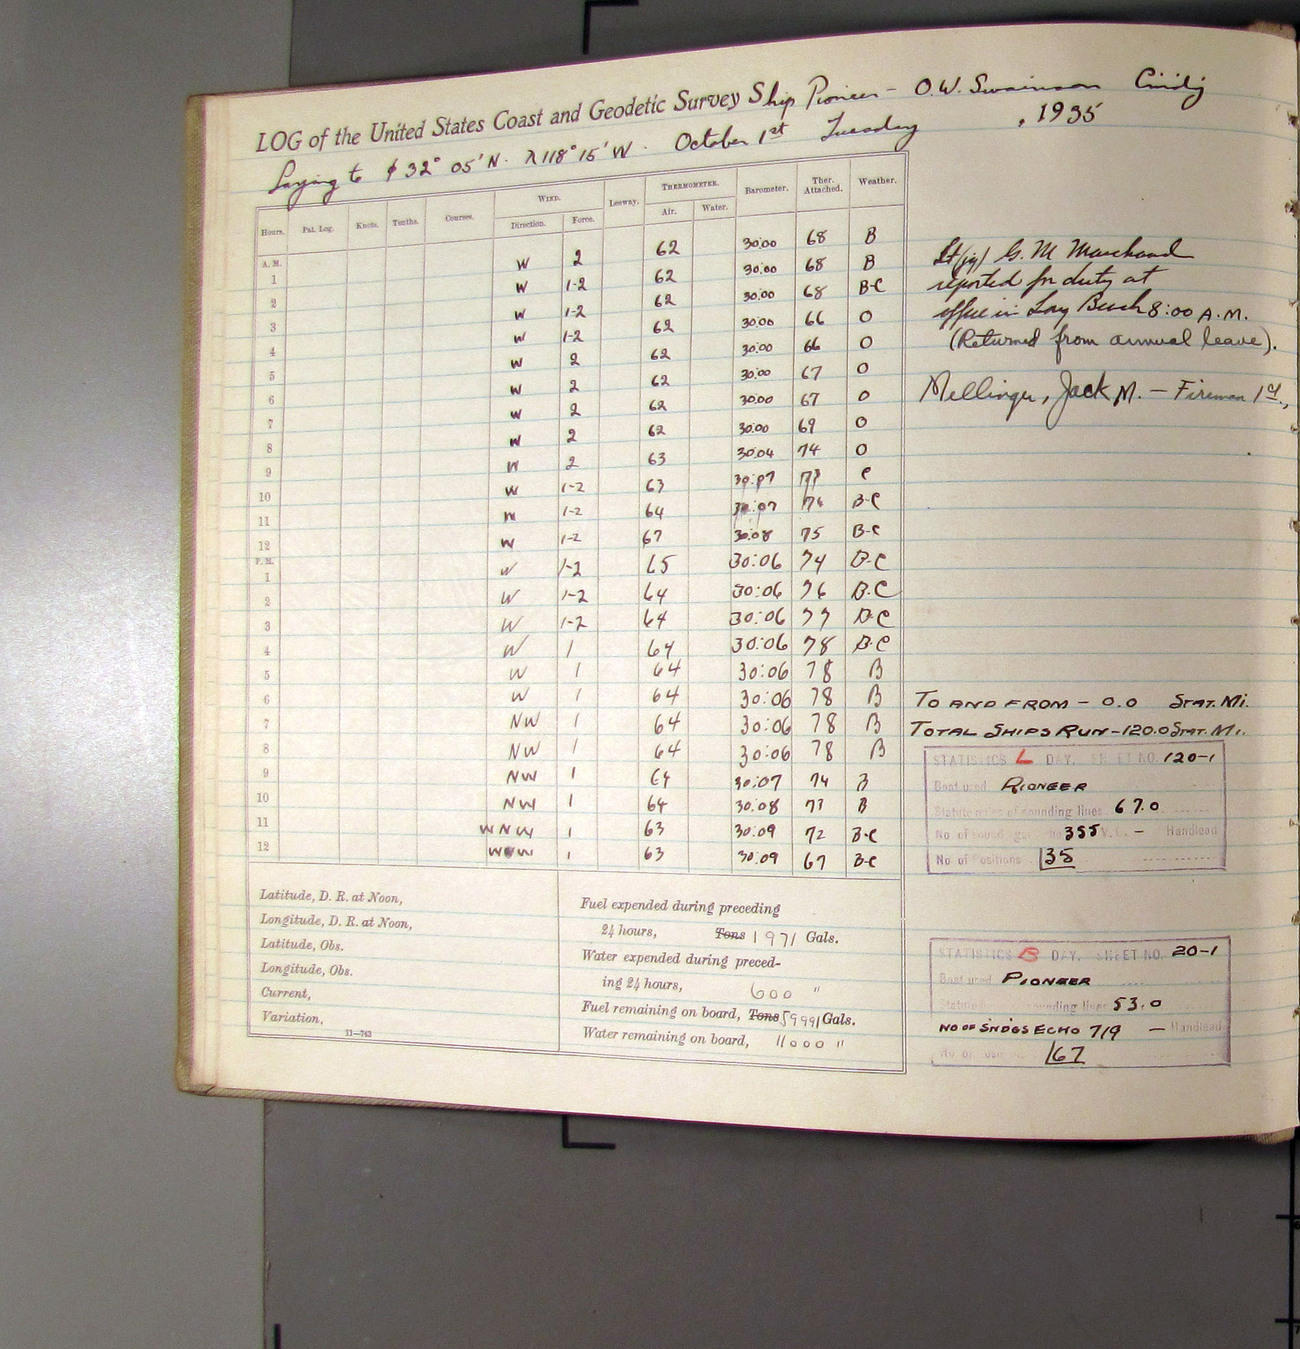 LOG of the United States Coast and Geodetic Survey Ship Pioneer – O.W. Swainson Cmdg
Laying to φ 32° 05' N. λ 118° 15' W. October 1st Tuesday , 1935
Hours. Pat. Log. Knots. Tenths. Courses. WIND. Direction. Force. Leeway. THERMOMETER. Air. Water. Barometer. Ther. Attached. Weather.
A. M.
1 W 2 62 30.00 68 B
2 W 1-2 62 30.00 68 B
3 W 1-2 62 30.00 68 B-C
4 W 1-2 62 30.00 66 O
5 W 2 62 30.00 66 O
6 W 2 62 30.00 67 O
7 W 2 62 30.00 67 O
8 W 2 62 30.00 69 O
9 W 2 63 30.04 74 O
10 W 1-2 63 30.07 C
11 W 1-2 64 30.07 76 B-C
12 W 1-2 67 30.08 75 B-C
P. M.
1 W 1-2 65 30:06 74 B-C
2 W 1-2 64 30:06 76 B.C
3 W 1-2 64 30:06 77 B-C
4 W 1 64 30:06 78 B-C
5 W 1 64 30:06 78 B
6 W 1 64 30:06 78 B
7 NW 1 64 30:06 78 B
8 NW 1 64 30:06 78 B
9 NW 1 64 30:07 74 B
10 NW 1 64 30.08 73 B
11 WNW 1 63 30:09 72 B-C
12 WNW 1 63 30:09 67 B-C
Lt(jg) G. M. Marchand
reported for duty at
office in Long Beach 8:00 A.M.
(Returned from annual leave).
Mellinger, Jack M. – Fireman 1st,
TO AND FROM – 0.0 STAT. MI.
TOTAL SHIPS RUN – 120.0 STAT. MI.
STATISTICS L DAY, SHEET NO. 120-1
Boat used PIONEER
Statute miles of sounding lines 67.0
No. of soundings 355 V.C. – Handlead
No of Positions 135
STATISTICS B DAY, SHEET NO. 20-1
Boat used PIONEER
Statute sounding lines 53.0
NO OF SNDGS ECHO 719 – Handlead
No. of 167
Latitude, D. R. at Noon,
Longitude, D. R. at Noon,
Latitude, Obs.
Longitude, Obs.
Current,
Variation,
11—763
Fuel expended during preceding
24 hours, Tons 1971 Gals.
Water expended during preced-
ing 24 hours, 600 "
Fuel remaining on board, Tons 59991 Gals.
Water remaining on board, 11000 "